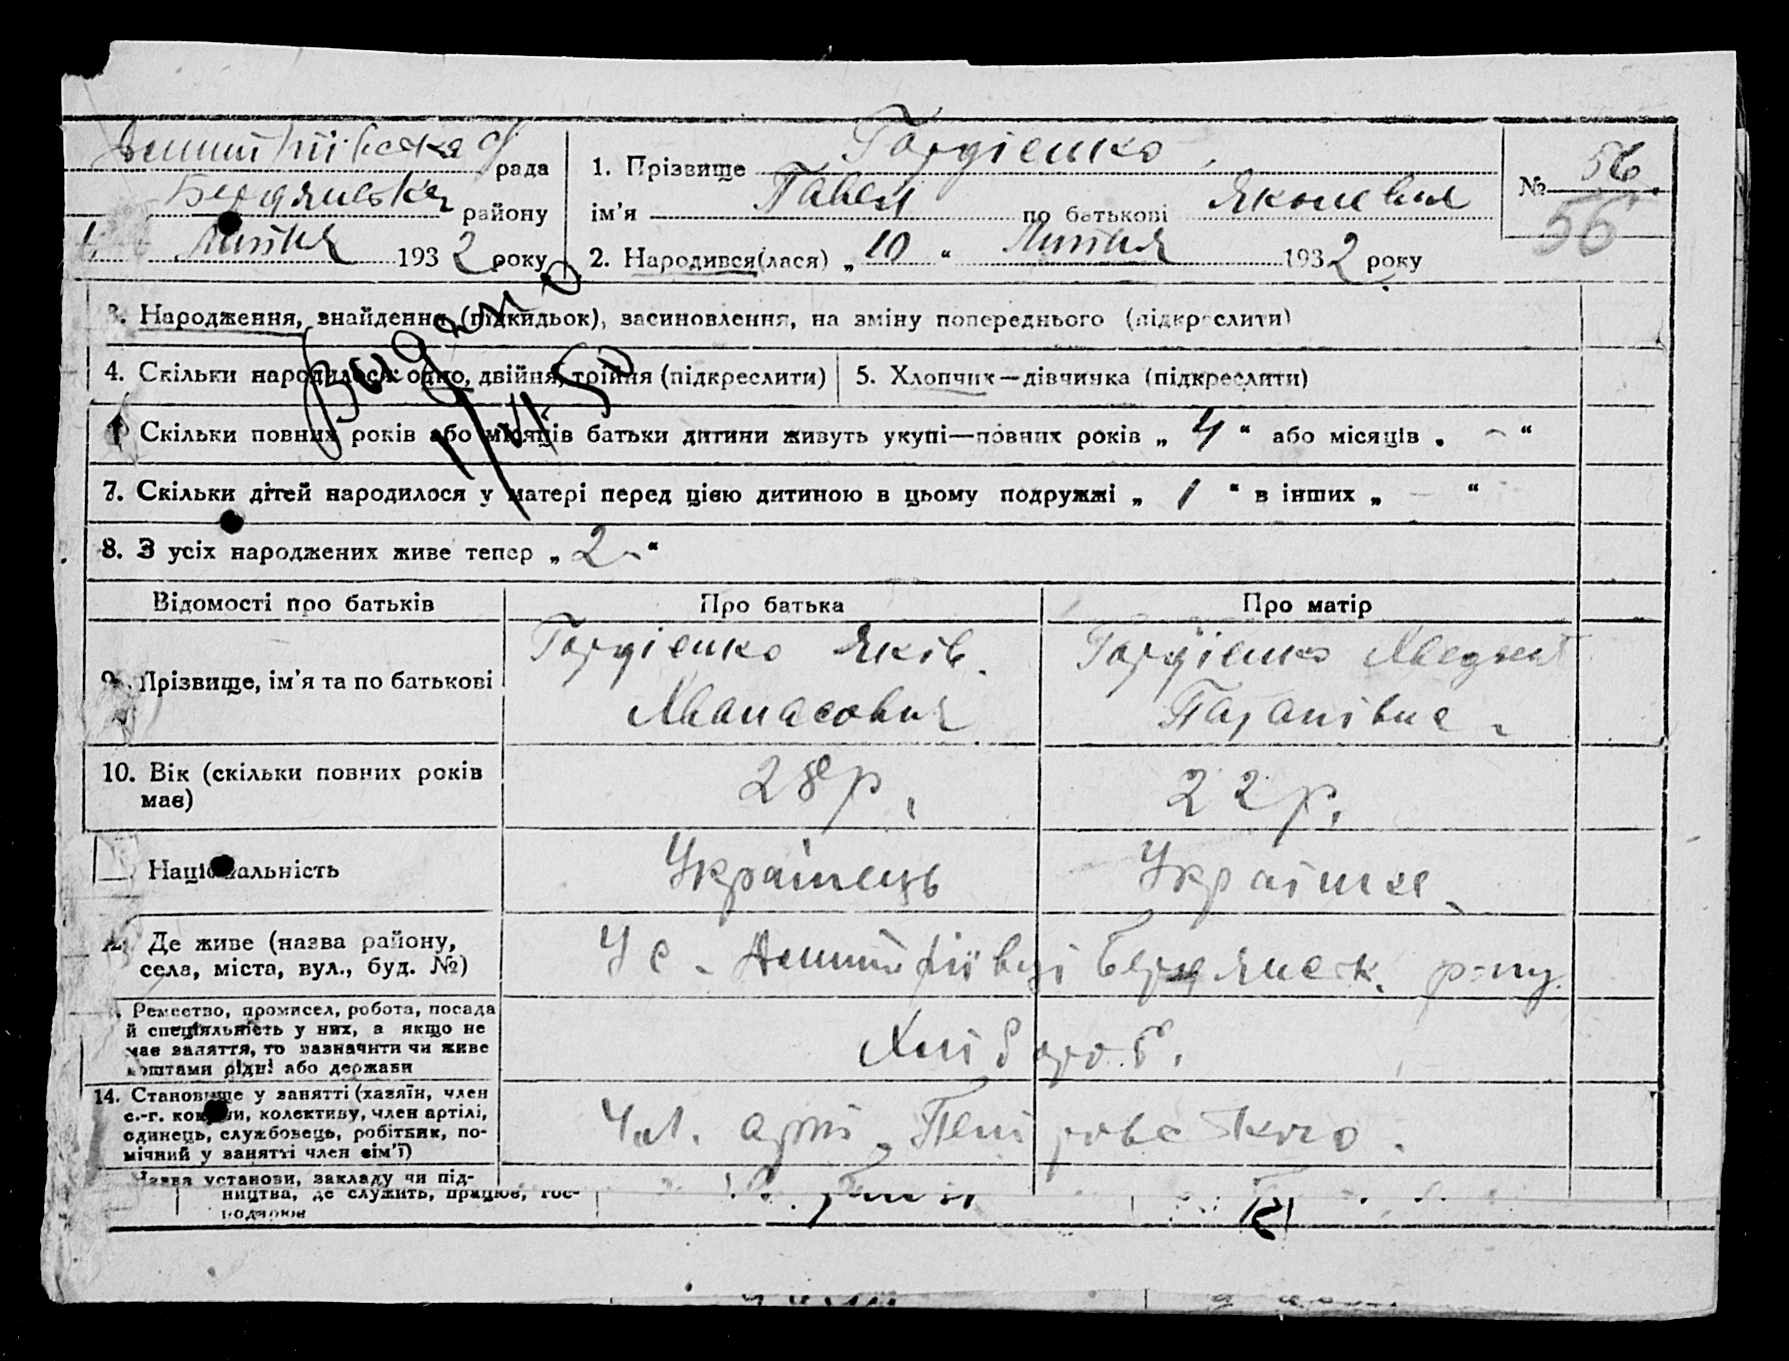 Дмитрівська рада
Бердянська району
Липня 1932 року
1. Прізвище Гордієнко
ім'я Павел по батькові Якович
2. Народився(лася) „10“ Липня 1932 року
№ 56
56
3. Народження, знайдення (підкидьок), засиновлення, на зміну попереднього (підкреслити)
Видано
4. Скільки народилося: одно, двійня, трійня (підкреслити)
5. Хлопчик—дівчинка (підкреслити)
Скільки повних років або місяців батьки дитини живуть укупі—повних років „4“ або місяців „-“
7. Скільки дітей народилося у матері перед цією дитиною в цьому подружжі „1“ в інших „-“
8. З усіх народжених живе тепер „2“
Відомості про батьків Про батька Про матір
9. Прізвище, ім'я та по батькові
Гордієнко Яків
Гордієнко
10. Вік (скільки повних років
має)
28 р.
22 р.
Національність
Українець
Українка
Де живе (назва району,
села, міста, вул., буд. №)
У с. Дмитрівці Бердянськ. р-ну
Ремество, промисел, робота, посада
й спеціяльність у них, а якщо не
має заняття, то зазначити чи живе
коштами рідні або держави
Хлібороб.
14. Становище у занятті (хазяїн, член
с.-г. комуни, колективу, член артілі,
одинець, службовець, робітник, по-
мічний у занятті член сім'ї)
Чл. арт. Петровського.
Назва установи, закладу чи під-
ництва, де служить, працює, гос-